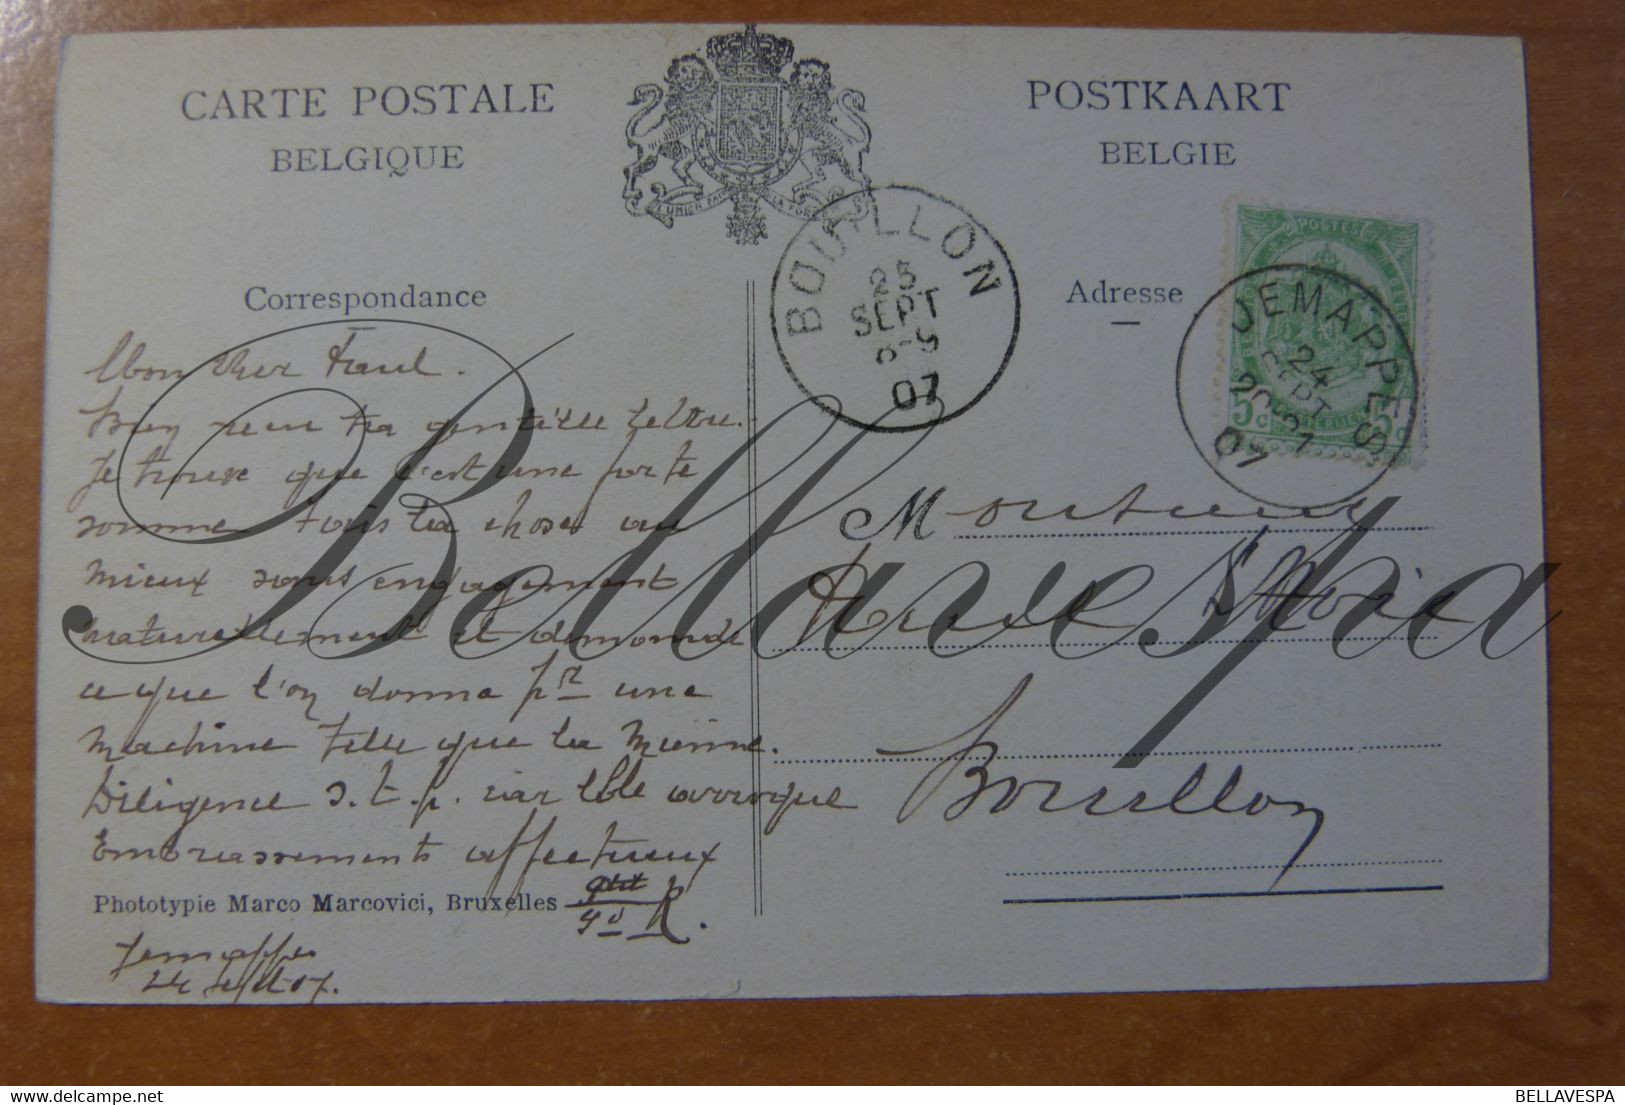 CARTE POSTALE
BELGIQUE
POSTKAART
BELGIE
L'UNION FAIT LA FORCE
BOUILLON
25
SEPT
07
Correspondance
Adresse
POSTES
5c
5c
JEMAPPES
24
SEPT
20-21
07
Mon cher Paul.
Bien reçu ta gentille lettre.
Je trouve que c'est une forte
somme fais ta chose au
mieux sans engagement
naturellement et demande
ce que l'on donna pr une
machine telle que la mienne.
Diligence s.t.p. car
Embrassements affectueux
R.
Jemappes
24 Sept 07.
Phototypie Marco Marcovici, Bruxelles
M
Bouillon
Bellavespa
BELLAVESPA